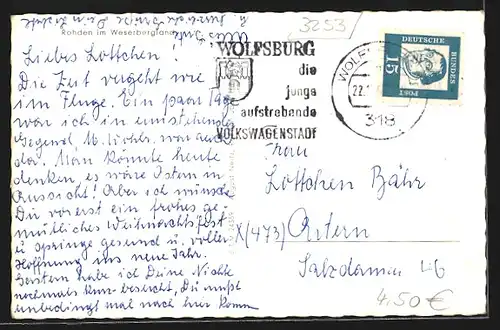 Rohden im Weserbergland
3253
WOLFSBURG
die
junge
aufstrebende
VOLKSWAGENSTADT
WOLFSBURG
22.
318
DEUTSCHE
BUNDES
POST
15
Liebes Lottchen!
Die Zeit vergeht wie
im Fluge. Ein paar Tage
war ich in umstehender
Gegend,
da. Man könnte heute
denken, es wäre Ostern in
Aussicht! Aber ich wünsche
Dir vorerst ein frohes ge-
mütliches Weihnachtsfest
u. springe gesund u. voller
Hoffnung ins neue Jahr.
Gestern habe ich Deine Nichte
nochmals kurz besucht, Du mußt
unbedingt mal nach hier komm
Alles Gute
Frau
Lottchen Bähr
X(473) Artern
Salzdamm 46
4.50 €